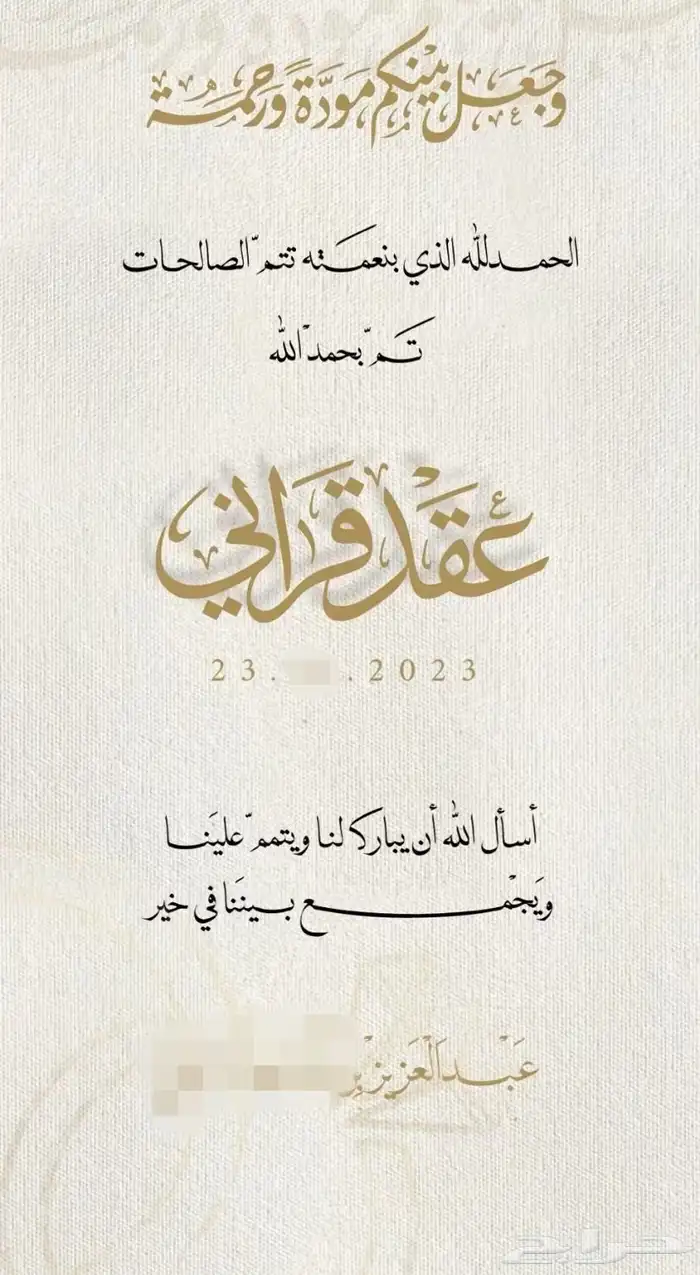 وَجَعَلَ بَيْنَكُم مَوَدَّةً وَرَحْمَةً
الحمدلله الذي بنعمته تتمّ الصالحات
تَمّ بحمد الله
عقد قراني
23. .2023
أسأل الله أن يبارك لنا ويتممّ علينَا
ويَجْمع بيننَا في خير
عَبْدالْعَزيز
حراج